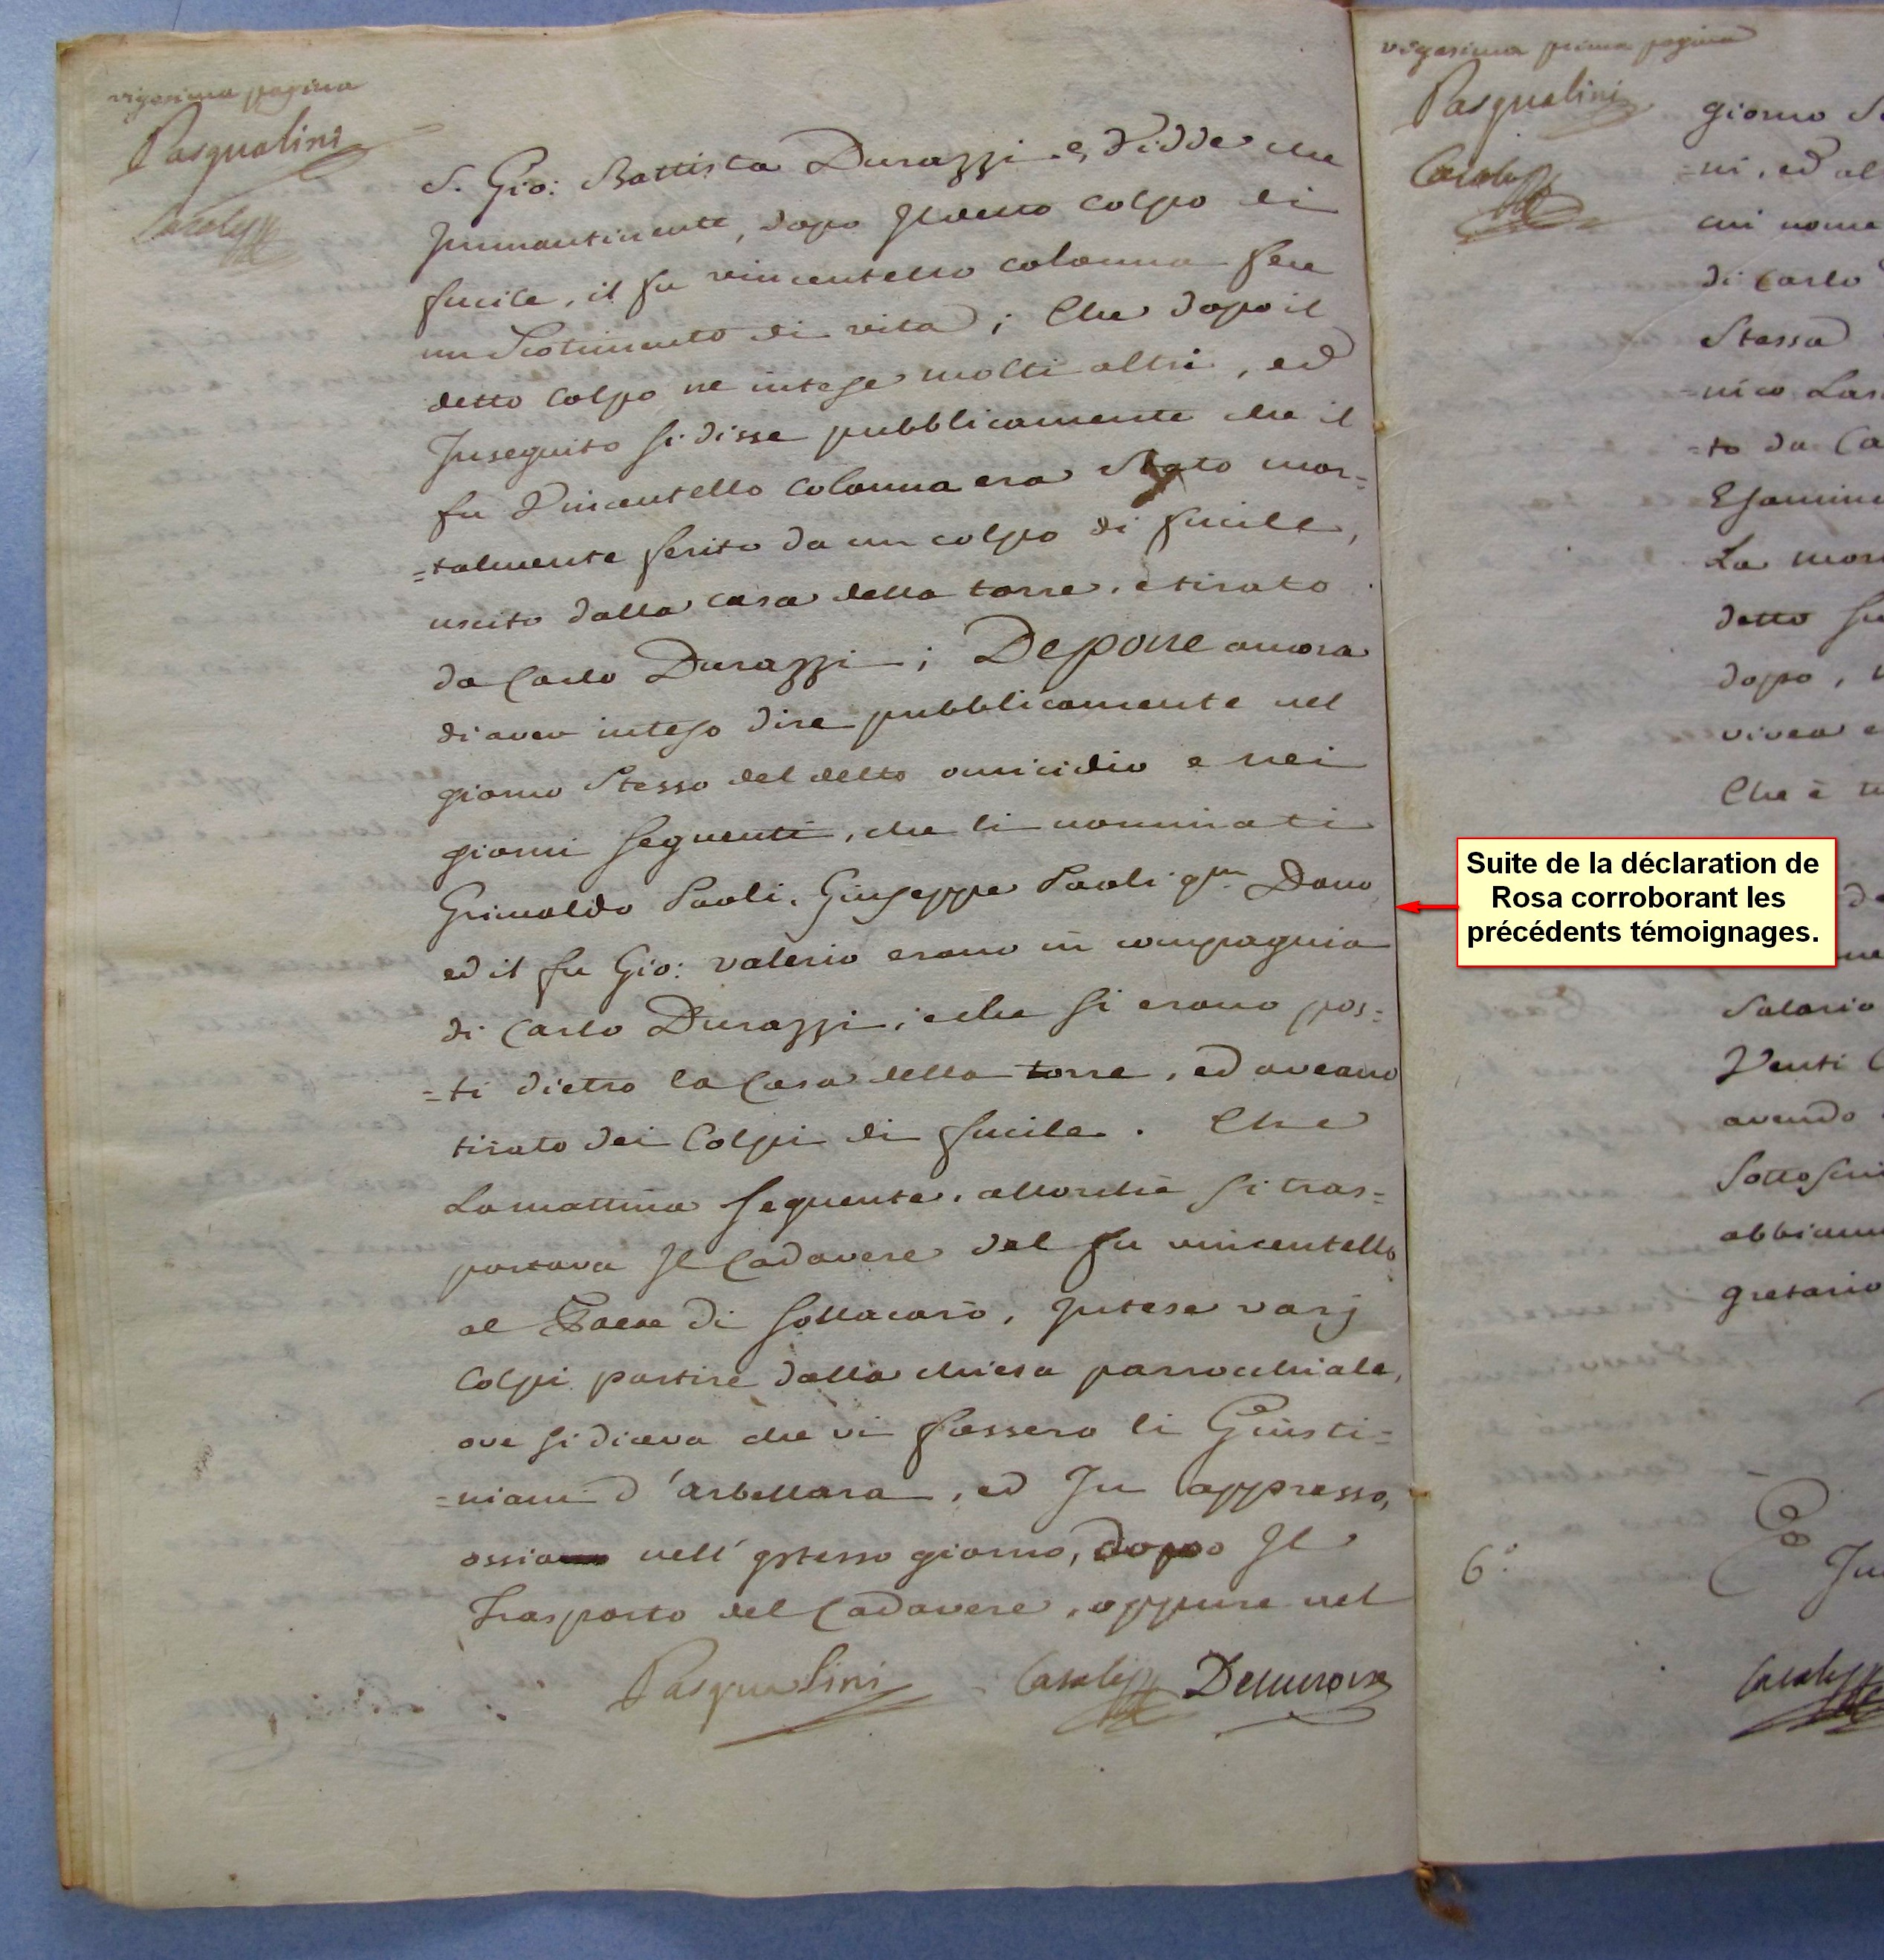 vigesima pagina
Pasqualini
Casalesi
S. Gio: Battista Durazzi e, vidde che
Immantinente, dopo Il detto colpo di
fucile, il fu vincentello colonna fece
un Scotimento di vita; Che dopo il
detto Colpo ne intese molti altri, ed
Inseguito si disse pubblicamente che il
fu Vincentello Colonna era Stato mor=
=talmente ferito da un colpo di fucile,
uscito dalla casa della torre, e tirato
da Carlo Durazzi; Depone ancora
di aver inteso dire pubblicamente nel
giorno Stesso del detto omicidio e nei
giorni seguenti, che li nominati
Grimaldo Paoli, Giuseppe Paoli qm.
ed il fu Gio: valerio erano in compagnia
di Carlo Durazzi; e che si erano pos=
=ti dietro la Casa della torre, ed aveano
tirato dei Colpi di fucile. Che
La mattina seguente, allorchè si tras=
portava Il Cadavere del fu vincentello
al Paese di Sollacarò, Intese varj
Colpi partire dalla chiesa parrocchiale,
ove si diceva che vi fossero li Giusti=
=niani d'Arbellara, ed In appresso,
ossia nell' istesso giorno, dopo Il
Trasporto del Cadavere, oppure nel
Pasqualini Casalesi
vigesima prima pagina
Pasqualini
Casalesi
giorno
=ni, ed al
cui nome
di Carlo
Stessa
=nico
=to da
La
detto
dopo,
vivea
Che è
Salario
Venti
avendo
abbiamo
gretario
6°
Casalesi
Suite de la déclaration de
Rosa corroborant les
précédents témoignages.